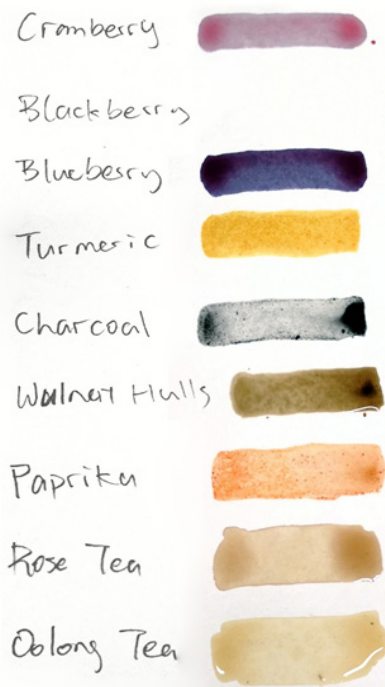 Cranberry
Blackberry
Blueberry
Turmeric
Charcoal
Walnut Hulls
Paprika
Rose Tea
Oolong Tea